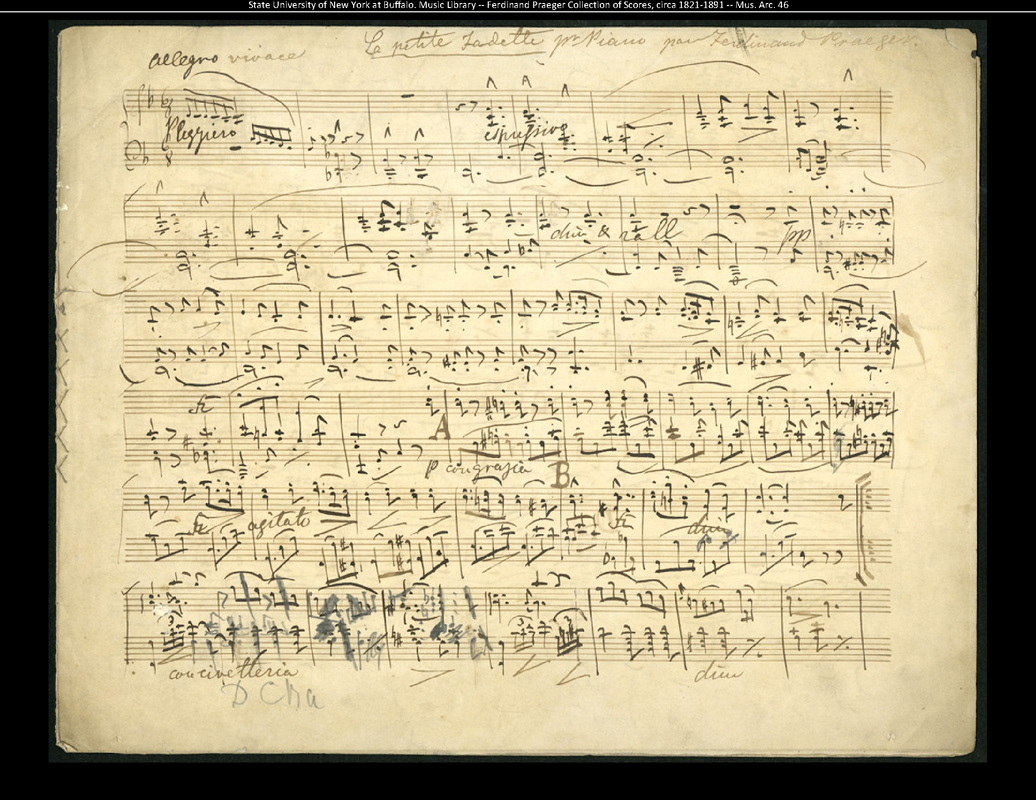 State University of New York at Buffalo. Music Library -- Ferdinand Praeger Collection of Scores, circa 1821-1891 -- Mus. Arc. 46
La petite Fadette pr Piano par Ferdinand Praeger.
allegro vivace
P leggiero
espressivo
dim & rall
pp
fz
A
p con grazia
B
fz agitato
fz
dim
con civetteria
dim